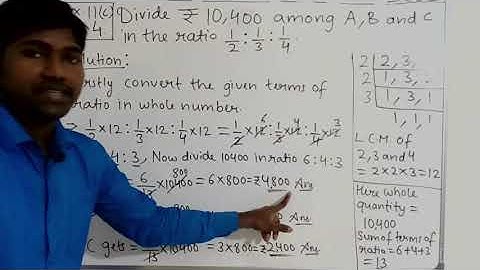 Ex 11(C)
4
Divide ₹ 10,400 among A, B and C
in the ratio 1/2 : 1/3 : 1/4.
Solution:
Firstly convert the given terms of
ratio in whole number.
⇒ 1/2 ×12 : 1/3 ×12 : 1/4 ×12 = 1/2 ×12 6 : 1/3 ×12 4 : 1/4 ×12 3
4:3, Now divide 10400 in ratio 6:4:3
6/13 ×10400 800 = 6×800=₹4800 Ans
800
Ans
C gets = /13 ×10400 = 3×800=₹2400 Ans
2 | 2, 3,
2 | 1, 3,
3 | 1, 3, 1
1, 1, 1
LCM of
2,3 and 4
= 2×2×3=12
Here whole
quantity =
10400
Sum of terms of
ratio=6+4+3
=13